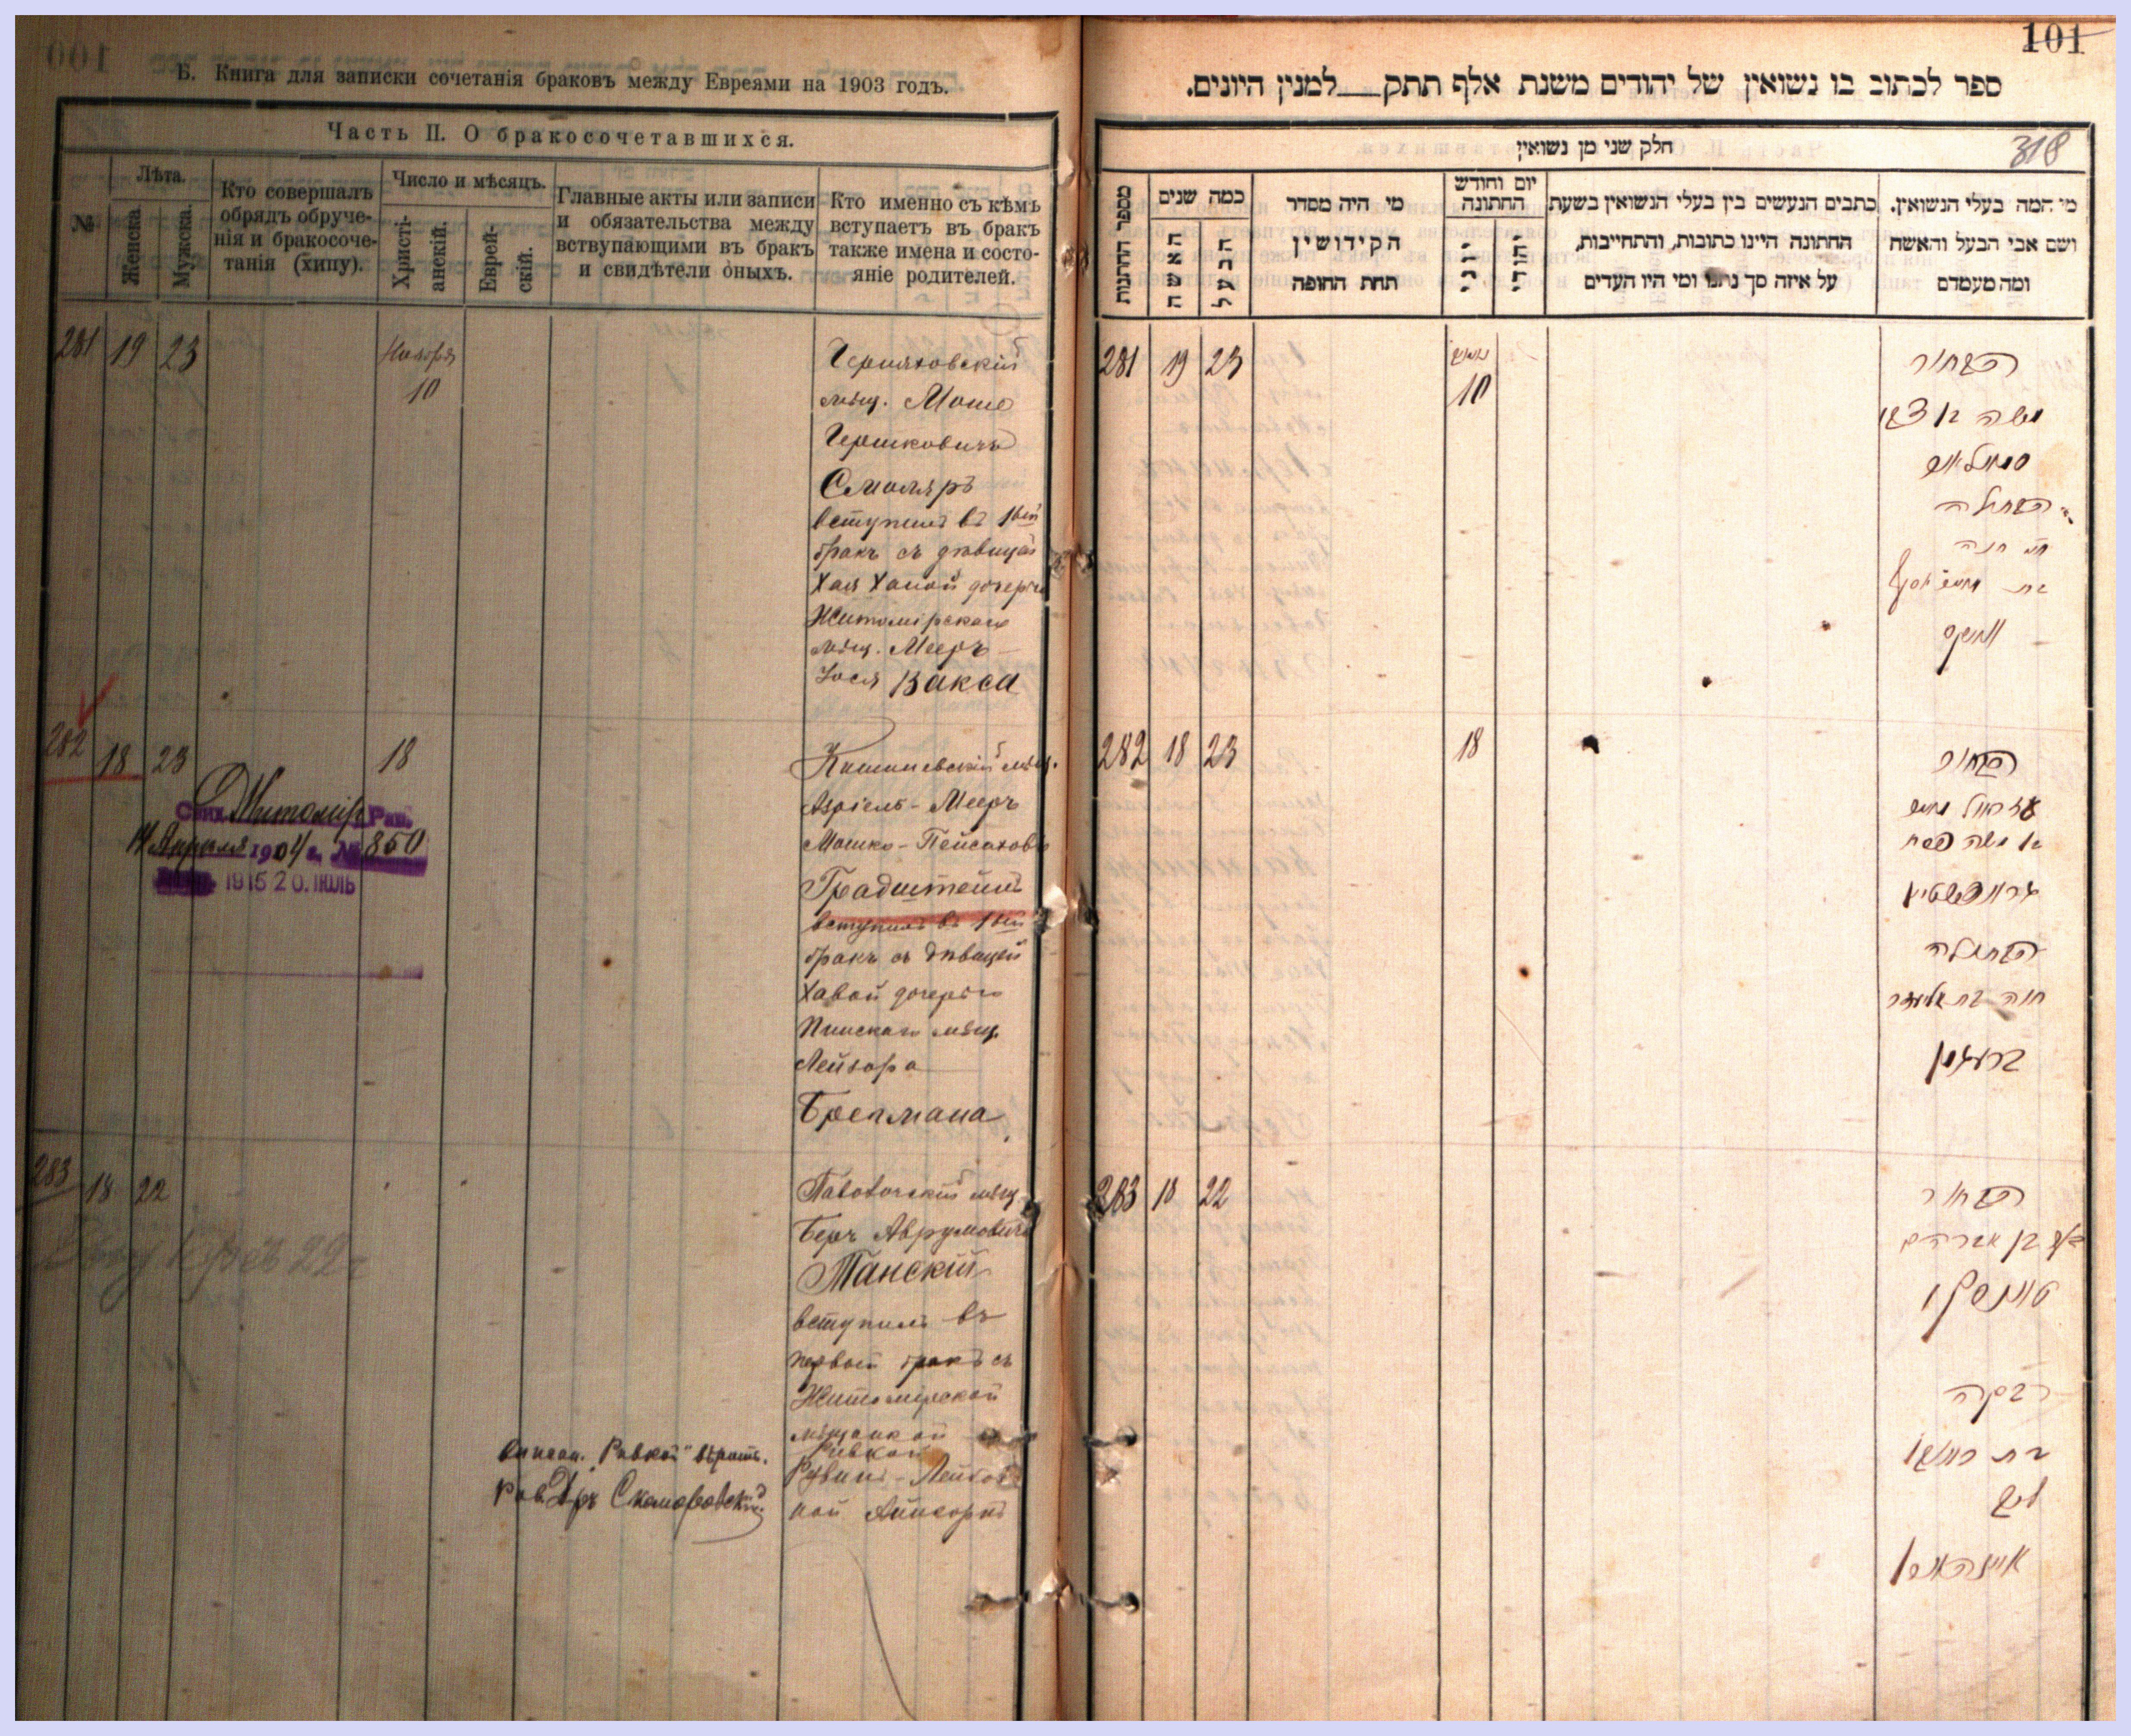 Б. Книга для записки сочетанія браковъ между Евреями на 1903 годъ.
Часть II. О бракосочетавшихся.
№
Лѣта.
Женска.
Мужска.
Кто совершалъ
обрядъ обруче-
нія и бракосоче-
танія (хипу).
Число и мѣсяцъ.
Христі-
анскій.
Еврей-
скій.
Главные акты или записи
и обязательства между
вствупающими въ бракъ
и свидѣтели оныхъ.
Кто именно съ кѣмъ
вступаетъ въ бракъ
также имена и состо-
яніе родителей.
281 19 23
Ноября
10
Черняховскій
мѣщ. Моше
Гершковичъ
Смоляръ
вступилъ въ 1ый
бракъ съ дѣвицей
Хая Ханой дочерью
Житомірскаго
мѣщ. Мееръ
Іося Вакса
282 18 23
18
Житомір Рав.
14 Апреля 1904 г. № 850
1915 20. ІЮЛЬ
Кишиневскій мѣщ.
Азріель-Мееръ
Мошко-Пейсаховъ
Градштейнъ
вступилъ въ 1ый
бракъ съ дѣвицей
Хавой дочерью
Пинскаго мѣщ.
Лейзора
Брегмана
283 18 22
Беръ Аврумовичъ
Танскій
вступилъ въ
первый бракъ съ
Житомирской
мѣщанкой
Ривкой
Рувинъ-Лейбов
ной Айнгорнъ
Ривкой" вѣрить.
Рав. Дръ Скоморовскій
101
ספר לכתוב בו נשואין של יהודים משנת אלף תתק למנין היונים.
318
חלק שני מן נשואין
מספר החתנות
כמה שנים
האשה
הבעל
מי היה מסדר
הקידושין
תחת החופה
יום וחודש
החתונה
יוני
יהודי
כתבים הנעשים בין בעלי הנשואין בשעת
החתונה היינו כתובות, והתחייבות,
על איזה סך נתנו ומי היו העדים
מי המה בעלי הנשואין.
ושם אבי הבעל והאשה
ומה מעמדם
281 19 23
10
הבחור
משה בן צבי
סמאליאר
הבתולה
חי' חנה
בת מאיר יוסף
וואקס
282 18 23
18
הבחור
עזריאל מאיר
בן משה פסח
גראדשטיין
הבתולה
חוה בת אליעזר
ברעגמן
283 18 22
הבחור
בער בן אברהם
טאנסקי
רבקה
בת ראובן
ליב
איינהארן